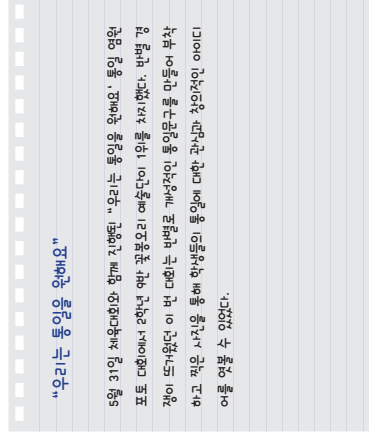 “우리는 통일을 원해요”
5월 31일 체육대회와 함께 진행된 “우리는 통일을 원해요’ 통일 염원
포토 대회에서 2학년 9반 꽃봉오리 예술단이 1위를 차지했다. 반별 경
쟁이 뜨거웠던 이 번 대회는 반별로 개성적인 통일문구를 만들어 부착
하고 찍은 사진을 통해 학생들의 통일에 대한 관심과 창의적인 아이디
어를 엿볼 수 있었다.